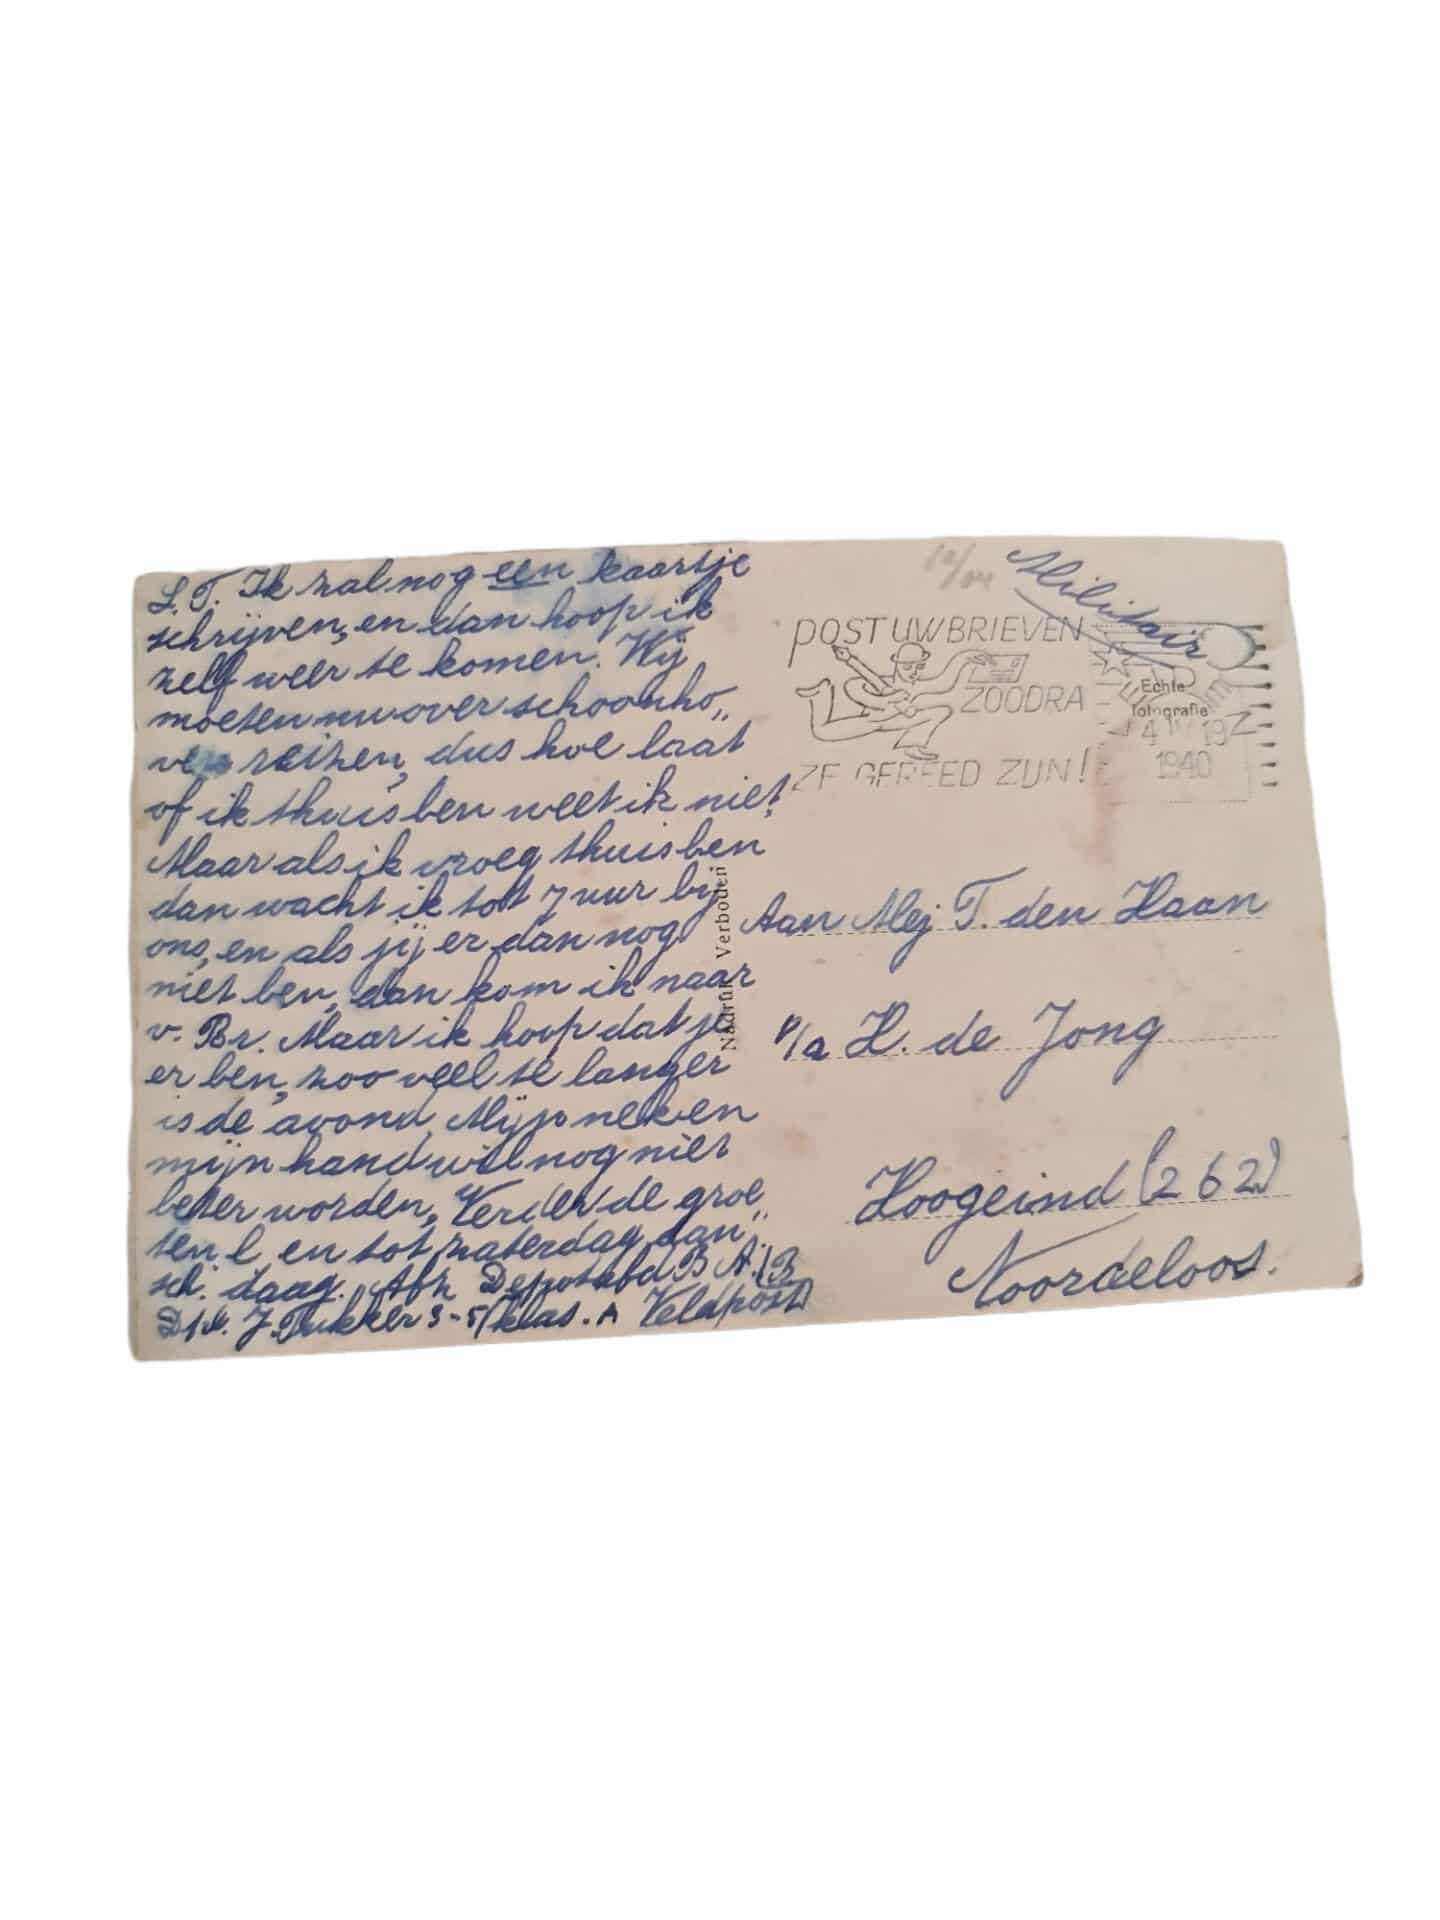 L. T. Ik zal nog een kaartje
schrijven, en dan hoop ik
zelf weer te komen. Wij
moeten nu over schoonho„
ven reizen, dus hoe laat
of ik thuis ben weet ik niet,
Maar als ik vroeg thuis ben
dan wacht ik tot 7 uur bij
ons, en als jij er dan nog
niet ben, dan kom ik naar
v. Br. Maar ik hoop dat je
er ben, zoo veel te langer
is de avond. Mijn nek en
mijn hand wil nog niet
beter worden, Verder de groe„
ten l en tot zaterdag aan„
sch. daag. Afz Depotabd B A.
J. Tukker 3-5/klas. A Veldpost
Nadruk Verboden
10/04
Militair
POST UW BRIEVEN
ZOODRA
ZE GEREED ZIJN!
Echte
fotografie
4 IV 19
1940
Aan Mej T. den Haan
p/a H. de Jong
Hoogeind (262)
Noordeloos.